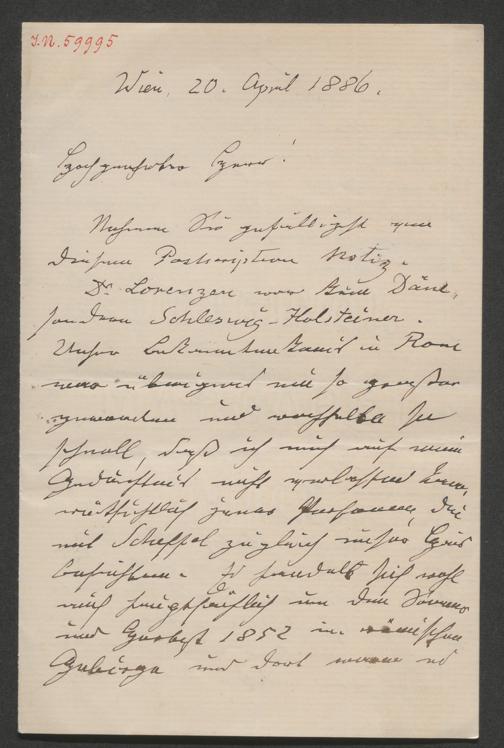 J.N. 59995
Wien, 20. April 1886.
Hochgeehrter Herr!
Nehmen Sie gefälligst von
diesem Postscriptum Notiz.
Dr Lorenzen war kein Däne,
sondern Schleswig-Holsteiner.
Unser Bekanntenkreis in Rom
war übrigens ein so großer
geworden und wechselte so
schnell, daß ich mich auf mein
Gedächtnis nicht verlassen kann,
rücksichtlich jener Personen, die
mit Scheffel zugleich unser Haus
besuchten. Es handelt sich wohl
auch hauptsächlich um den Sommer
und Herbst 1852 im römischen
Gebirge und dort waren es